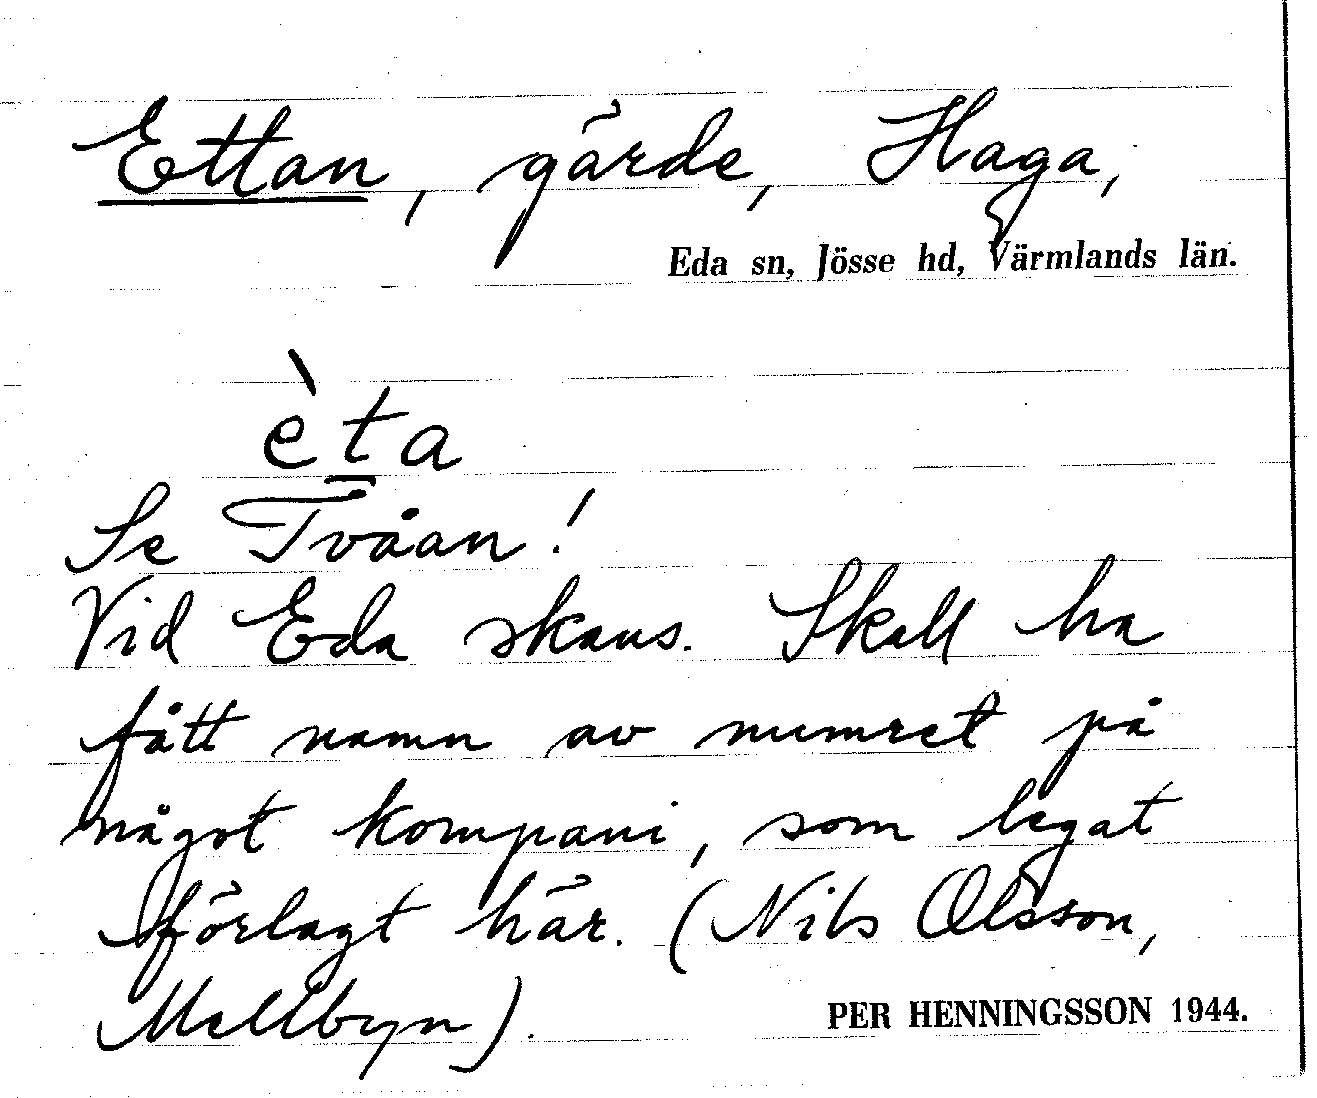 Ettan, gärde, Haga,
Eda sn, Jösse hd, Värmlands län.
èt̲a
Se Tvåan!
Vid Eda skans. Skall ha
fått namn av numret på
något kompani, som legat
förlagt här. (Nils Olsson,
Mellbyn).
PER HENNINGSSON 1944.